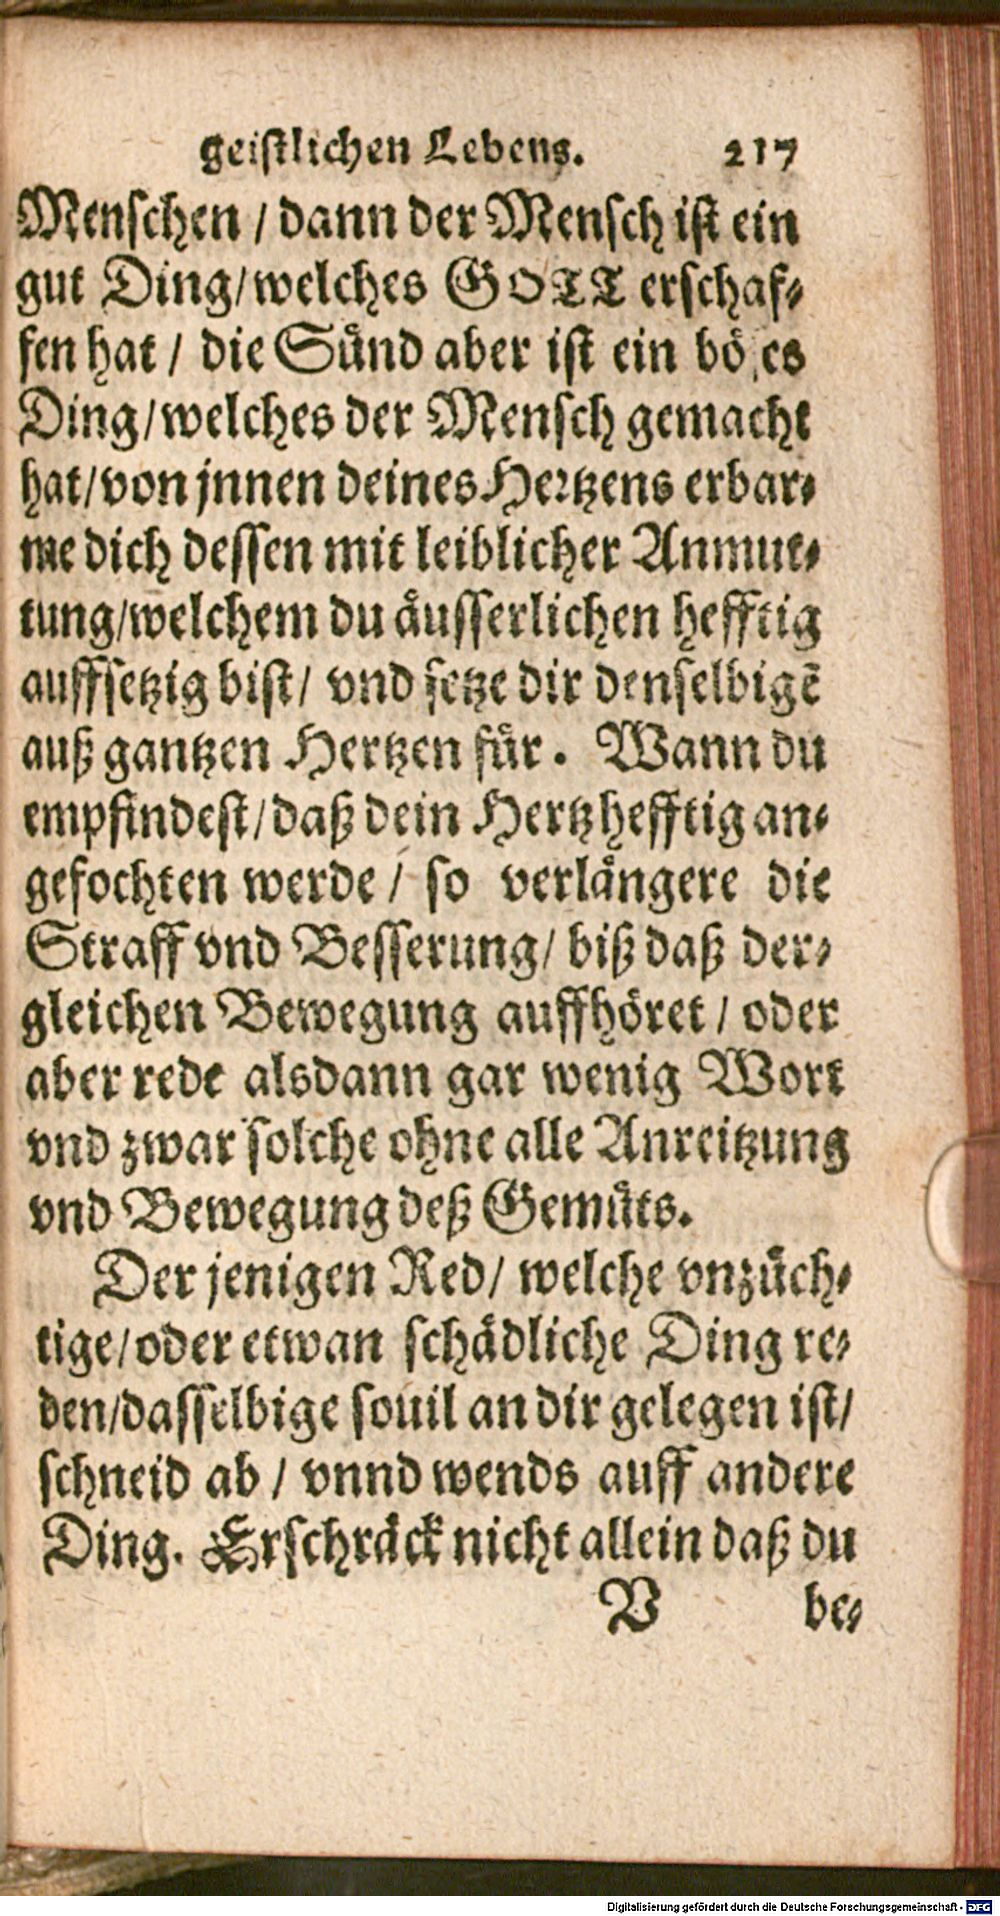 geistlichen Lebens. 217
Menschen / dann der Mensch ist ein
gut Ding/welches GOTT erschaf-
fen hat / die Sünd aber ist ein bö es
Ding/welches der Mensch gemacht
hat/von jnnen deines Hertzens erbar-
me dich dessen mit leiblicher Anmut-
tung/welchem du äusserlichen hefftig
auffsetzig bist/ vnd setze dir denselbigẽ
auß gantzen Hertzen für. Wann du
empfindest/daß dein Hertz hefftig an-
gefochten werde / so verlängere die
Straff vnd Besserung/ biß daß der-
gleichen Bewegung auffhöret / oder
aber rede alsdann gar wenig Wort
vnd zwar solche ohne alle Anreitzung
vnd Bewegung deß Gemüts.
Der jenigen Red/ welche vnzüch-
tige/oder etwan schädliche Ding re-
den/dasselbige souil an dir gelegen ist/
schneid ab / vnnd wends auff andere
Ding. Erschräck nicht allein daß du
V be-
Digitalisierung gefördert durch die Deutsche Forschungsgemeinschaft - DFG